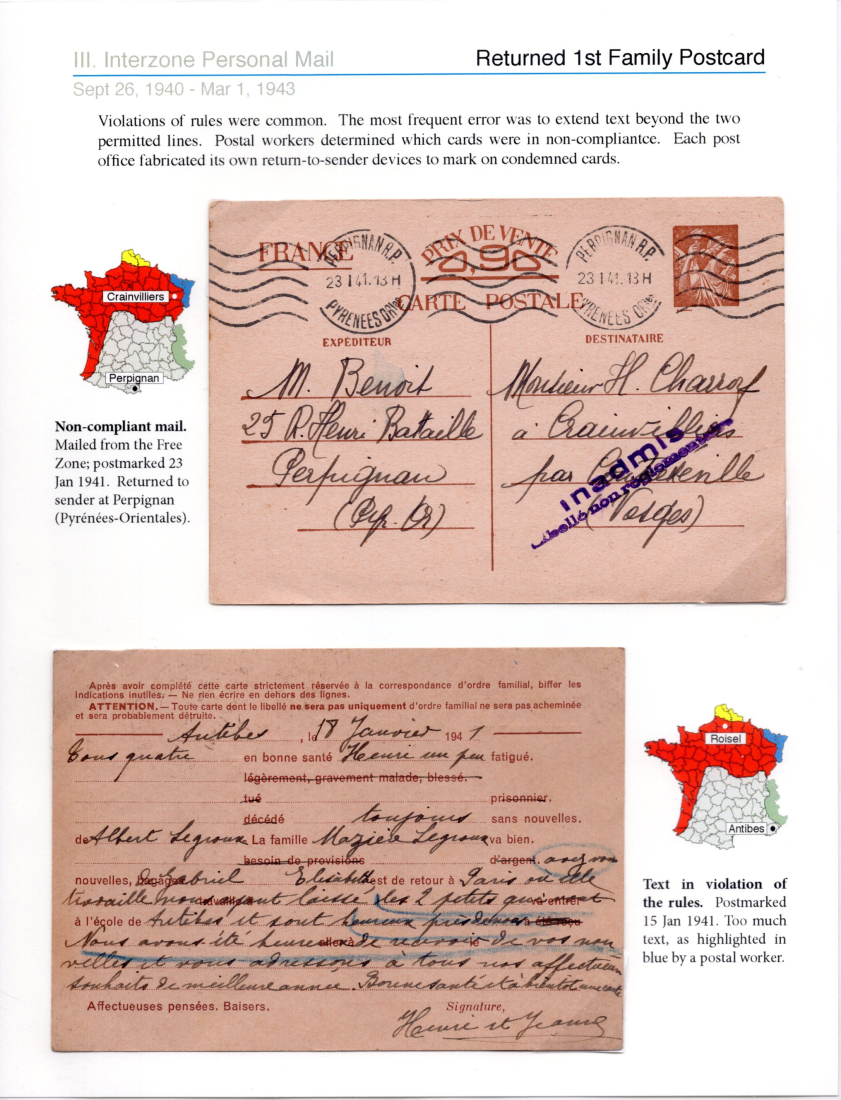 III. Interzone Personal Mail
Returned 1st Family Postcard
Sept 26, 1940 - Mar 1, 1943
Violations of rules were common. The most frequent error was to extend text beyond the two
permitted lines. Postal workers determined which cards were in non-compliantce. Each post
office fabricated its own return-to-sender devices to mark on condemned cards.
Crainvilliers
Perpignan
Non-compliant mail.
Mailed from the Free
Zone; postmarked 23
Jan 1941. Returned to
sender at Perpignan
(Pyrénées-Orientales).
FRANCE
PRIX DE VENTE
0,90
CARTE POSTALE
PERPIGNAN R.P.
23 1 41. 13 H
PYRENEES ORles
PERPIGNAN R.P.
23 1 41. 13 H
PYRENEES ORles
EXPÉDITEUR
M. Benoit
25 R. Henri Bataille
Perpignan
(Pyr. Or)
DESTINATAIRE
Monsieur H.
à Crainvilliers
par
(Vosges)
Inadmis
Libellé non réglementaire
Après avoir complété cette carte strictement réservée à la correspondance d'ordre familial, biffer les
indications inutiles. — Ne rien écrire en dehors des lignes.
ATTENTION. — Toute carte dont le libellé ne sera pas uniquement d'ordre familial ne sera pas acheminée
et sera probablement détruite.
Antibes, le 18 Janvier 1941
Tous quatre en bonne santé Henri un peu fatigué.
légèrement, gravement malade, blessé.
tué prisonnier.
décédé toujours sans nouvelles.
de Albert Legroux La famille Mazière Legroux va bien.
besoin de provisions d'argent. avez vous
nouvelles, bagages de Gabriel Elisabeth est de retour à Paris où elle
travaille nous ayant laissé les 2 petits qui vont
à l'école de Antibes et sont heureux
Nous avons été heureux de recevoir de vos nou
velles et vous adressons à tous nos affectueux
souhaits de meilleure année. Bonne santé et à bientôt une carte
Affectueuses pensées. Baisers.
Signature,
Henri et Jeanne
Roisel
Antibes
Text in violation of
the rules. Postmarked
15 Jan 1941. Too much
text, as highlighted in
blue by a postal worker.